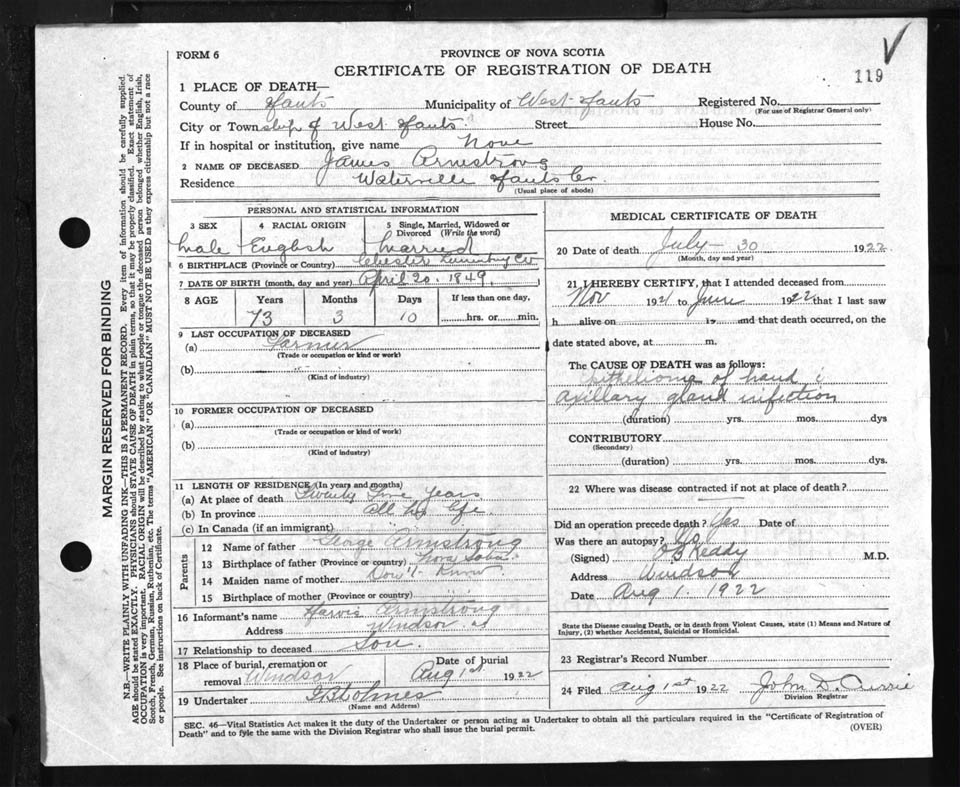 FORM 6
PROVINCE OF NOVA SCOTIA
CERTIFICATE OF REGISTRATION OF DEATH
119
1 PLACE OF DEATH—
County of Hants Municipality of West Hants Registered No.
(For use of Registrar General only)
City or Township of West Hants Street House No.
If in hospital or institution, give name None
2 NAME OF DECEASED James Armstrong
Residence Waterville Hants Co.
(Usual place of abode)
MARGIN RESERVED FOR BINDING
N.B.—WRITE PLAINLY WITH UNFADING INK—THIS IS A PERMANENT RECORD. Every item of information should be carefully supplied.
AGE should be stated EXACTLY. PHYSICIANS should STATE CAUSE OF DEATH in plain terms, so that it may be properly classified. Exact statement of
OCCUPATION is very important. RACIAL ORIGIN will be described by stating to what people or tongue the deceased person belonged whether English, Irish,
Scotch, French, German, Russian, Ruthenian, etc. The terms "AMERICAN" OR "CANADIAN" MUST NOT BE USED as they express citizenship but not a race
or people. See instructions on back of Certificate.
PERSONAL AND STATISTICAL INFORMATION
3 SEX 4 RACIAL ORIGIN 5 Single, Married, Widowed or
Divorced (Write the word)
Male English Married
6 BIRTHPLACE (Province or Country) Chester Lunenburg Co
7 DATE OF BIRTH (month, day and year) April 20. 1849
8 AGE Years Months Days If less than one day,
73 3 10 hrs. or min.
9 LAST OCCUPATION OF DECEASED
(a) Farmer
(Trade or occupation or kind or work)
(b)
(Kind of industry)
10 FORMER OCCUPATION OF DECEASED
(a)
(Trade or occupation or kind of work)
(b)
(Kind of industry)
11 LENGTH OF RESIDENCE (In years and months)
(a) At place of death Twenty Five years
(b) In province all his life.
(c) In Canada (if an immigrant)
Parents
12 Name of father George Armstrong
13 Birthplace of father (Province or country) Nova Scotia
14 Maiden name of mother Don't Know
15 Birthplace of mother (Province or country)
16 Informant's name Harvie Armstrong
Address Windsor
17 Relationship to deceased Son
18 Place of burial, cremation or Date of burial
removal Windsor Aug 1st 1922
19 Undertaker
(Name and Address)
MEDICAL CERTIFICATE OF DEATH
20 Date of death July - 30 1922
(Month, day and year)
21 I HEREBY CERTIFY, that I attended deceased from
Nov 1921 to June 1922 that I last saw
h alive on 19 and that death occurred, on the
date stated above, at m.
The CAUSE OF DEATH was as follows:
Epithelioma of hand c
axillary gland infection
(duration) yrs. mos. dys
CONTRIBUTORY
(Secondary)
(duration) yrs. mos. dys.
22 Where was disease contracted if not at place of death?
Did an operation precede death? Yes Date of
Was there an autopsy? No
(Signed) O B Keddy M.D.
Address Windsor
Date Aug 1. 1922
State the Disease causing Death, or in death from Violent Causes, state (1) Means and Nature of
Injury, (2) whether Accidental, Suicidal or Homicidal.
23 Registrar's Record Number
24 Filed Aug 1st 1922 John D. Currie
Division Registrar
SEC. 46—Vital Statistics Act makes it the duty of the Undertaker or person acting as Undertaker to obtain all the particulars required in the "Certificate of Registration of
Death" and to fyle the same with the Division Registrar who shall issue the burial permit.
(OVER)